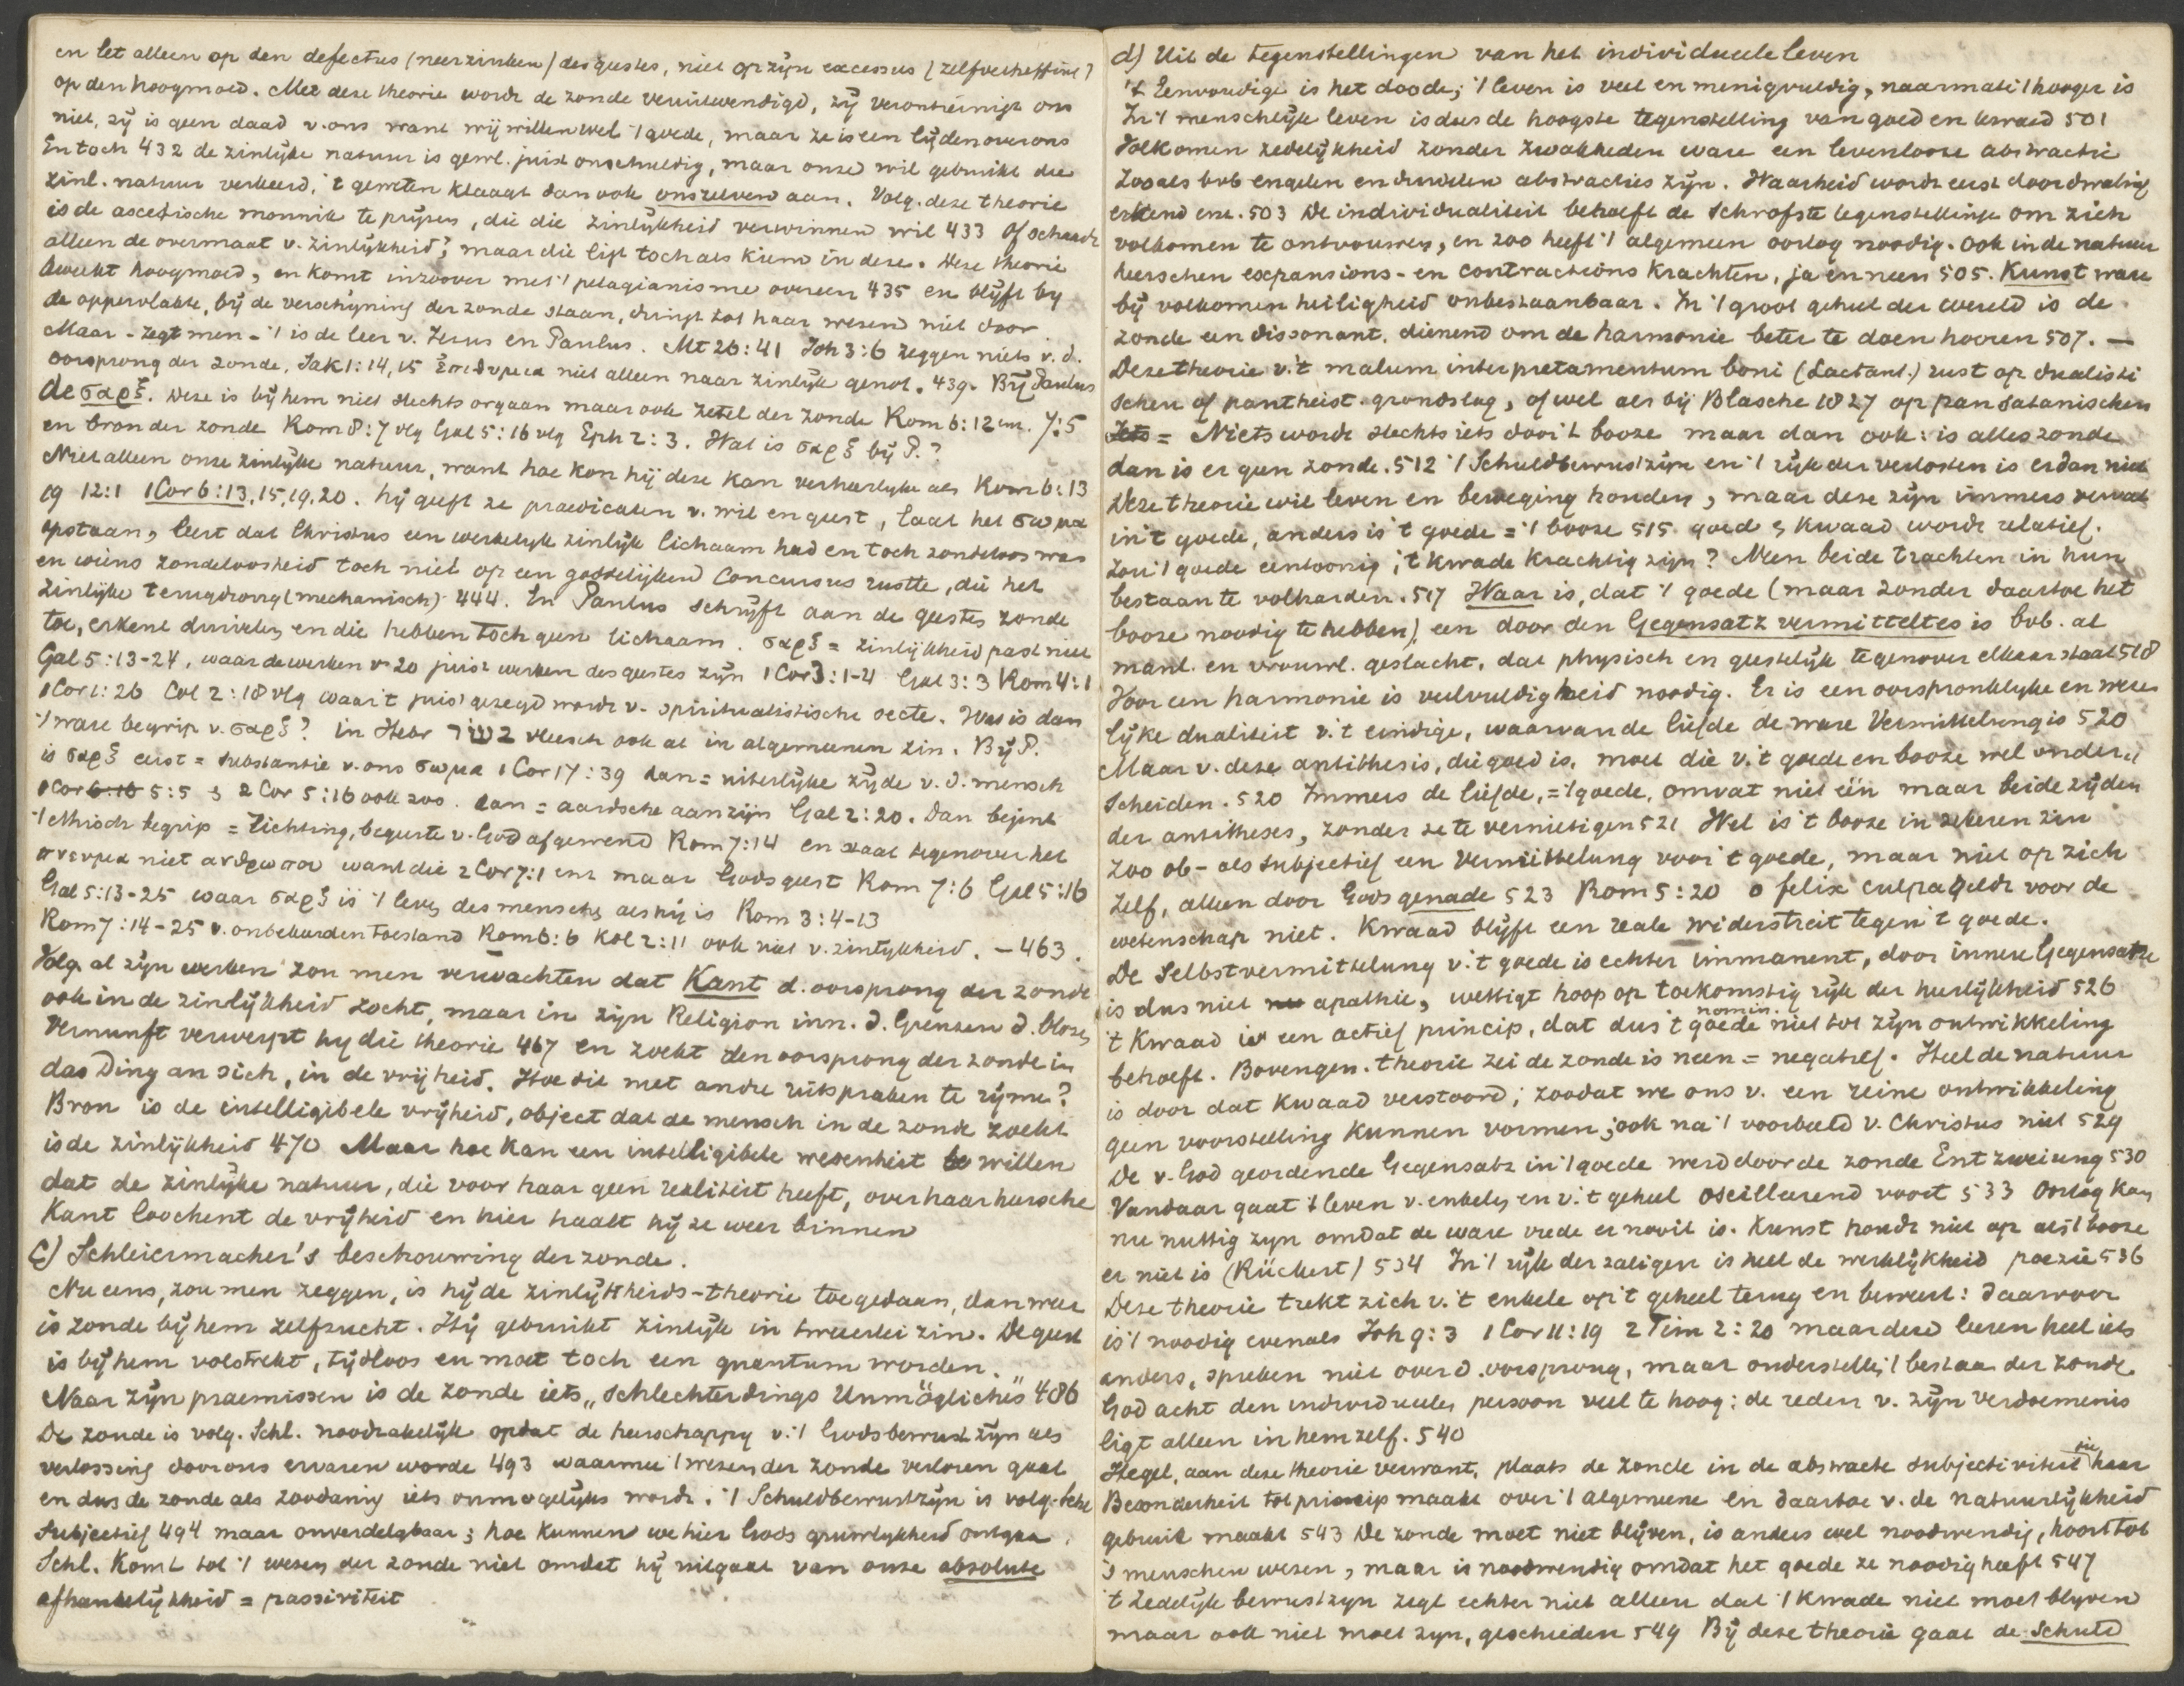 en let alleen op den defectus (neerzinken) des geestes, niet op zijn excessus (zelfverheffing)
op den hoogmoed. Met deze theorie wordt de zonde veruitwendigd, zij verontreinigt ons
niet, zij is geen daad v. ons want wij willen wel 't goede, maar ze is een lijden over ons
En toch 432 de zinlijke natuur is gewl. juist onschuldig, maar onze wil gebruikt die
zinl. natuur verkeerd, 't geweten klaagt dan ook onszelven aan. Volg. deze theorie
is de ascetische monnik te prijzen, die die zinlijkheid verwinnen wil 433 Of schaadt
alleen de overmaat v. zinlijkheid? maar die ligt toch als kiem in deze. Deze theorie
kweekt hoogmoed, en komt inzoover met 't pelagianisme overeen 435 en blijft by
de oppervlakte, bij de verschijning der zonde staan, dringt tot haar wezen niet door
Maar - zegt men - 't is de leer v. Jezus en Paulus. Mt 26:41 Joh 3:6 zeggen niets v. d.
oorsprong der zonde, Jak 1:14,15 ἐπιθυμια niet alleen naar zinlijk genot. 439. Bij Paulus
de σαρξ. Deze is bij hem niet slechts orgaan maar ook zetel der zonde Rom 6:12 enz. 7:5
en bron der zonde Rom 8:7 vlg Gal 5:16 vlg Eph 2:3. Wat is σαρξ bij P.?
Niet alleen onze zinlijke natuur, want hoe kon hij deze kan verheerlijkt als Rom 6:13
19 12:1 1 Cor 6:13,15,19,20. hij geeft ze praedicaten v. wil en geest, laat het σωμα
opstaan, leert dat Christus een werkelijk zinlijk lichaam had en toch zondeloos was
en wiens zondeloosheid toch niet op een goddelijken Concursus rustte, die het
zinlijke terugdrong (mechanisch) 444. En Paulus schrijft aan de geest zonde
toe, erkent duivelen en die hebben toch geen lichaam. σαρξ = zinlijkheid past niet
Gal 5:13-24, waar de werken v 20 juist werken des geestes zijn 1 Cor 3:1-4 Gal 3:3 Rom 4:1
1 Cor 1:26 Col 2:18 vlg waar 't juist gezegd wordt v. spiritualistische secte. Wat is dan
't ware begrip v. σαρξ? in Hebr בשׂר vleesch ook al in algemeenen zin. Bij P.
is σαρξ eerst = substantie v. ons σωμα 1 Cor 17:39 dan = uiterlijke zijde v. d. mensch
1 Cor 6:16 5:5 & 2 Cor 5:16 ook zoo. dan = aardsche aanzijn Gal 2:20. Dan bejent
't ethisch begrip = richting, begeerte v. God afgewend Rom 7:14 en staat tegenover het
πνευμα niet ανθρωπου want die 2 Cor 7:1 enz maar Gods geest Rom 7:6 Gal 5:16
Gal 5:13-25 waar σαρξ is 't leven des menschen als hij is Rom 3:4-13
Rom 7:14-25 v. onbekeerden toestand Rom 6:6 Kol 2:11 ook niet v. zinlijkheid. - 463.
Volg. al zijn werken zou men verwachten dat Kant d. oorsprong der zonde
ook in de zinlijkheid zocht, maar in zijn Religion inn. d. Grenzen d. blosen
Vernunft verwerpt hij die theorie 467 en zoekt den oorsprong der zonde in
das Ding an sich, in de vrijheid. Hoe die met andre uitspraken te rijmen?
Bron is de intelligibele vrijheid, object dat de mensch in de zonde zoekt
is de zinlijkheid 470 Maar hoe kan een intelligibele wezenheit willen
dat de zinlijke natuur, die voor haar geen realiteit heeft, over haar heersche
Kant loochent de vrijheid en hier haalt hij ze weer binnen
c) Schleiermacher's beschouwing der zonde.
Nu eens, zou men zeggen, is hij de zinlijkheids-theorie toegedaan, dan weer
is zonde bij hem zelfzucht. Hij gebruikt zinlijk in tweeerlei zin. De geest
is bij hem volstrekt, tijdloos en moet toch een quantum worden.
Naar zijn praemissen is de zonde iets „schlechterdings Unmögliches" 486
De zonde is volg. Schl. noodzakelijk opdat de heerschappij v. 't Godsbewustzijn als
verlossing door ons ervaren worde 493 waarmee 't wezen der zonde verloren gaat
en dus de zonde als zoodanig iets onmogelijks wordt. 't Schuldbewustzijn is volg. Schl
subjectief 494 maar onverdelgbaar; hoe kunnen we hier Gods gruwlykheid ontgaan.
Schl. komt tot 't wezen der zonde niet omdat hij uitgaat van onze absolute
afhankelijkheid = passiviteit
d) Uit de tegenstellingen van het individueele leven
't Eenvoudige is het doode; 't leven is veel en menigvuldig, naarmate 't hooger is
In 't menschelijk leven is dus de hoogste tegenstelling van goed en kwaad 501
Volkomen zedelijkheid zonder zwakheden ware een levenlooze abstractie
Zooals bvb engelen en duivelen abstracties zijn. Waarheid wordt eerst door dwaling
erkend enz. 503 De individualiteit behoeft de schrofste tegenstelling om zich
volkomen te ontvouwen, en zoo heeft 't algemeen oorlog noodig. Ook in de natuur
heerschen expansions- en contractions krachten, ja en neen 505. Kunst ware
bij volkomen heiligheid onbestaanbaar. In 't groot geheel der wereld is de
zonde een dissonant, dienend om de harmonie beter te doen hooren 507. —
Deze theorie v. 't malum interpretamentum boni (Lactant.) rust op dualisti
schen of pantheist. grondslag, of wel als bij Blasche 1827 op pansatanischen
Iets = Niets wordt slechts iets door 't booze maar dan ook: is alles zonde
dan is er geen zonde. 512 't Schuldbewustzijn en 't rijk der verlosten is er dan niet
Deze theorie wil leven en beweging houden, maar deze zijn immers vervat
in 't goede, anders is 't goede = 't booze 515 goed & kwaad wordt relatief.
Zou 't goede eentoonig, 't kwade krachtig zijn? Neen beide trachten in hun
bestaan te volharden. 517 Waar is, dat 't goede (maar zonder daartoe het
booze noodig te hebben), een door den Gegensatz vermitteltes is bvb. al
manl. en vrouwl. geslacht, dat physisch en geestelijk tegenover elkaar staat 518
Voor een harmonie is veelvuldigheid noodig. Er is een oorspronklijke en weze
lijke dualiteit v. 't eindige, waarvan de liefde de ware Vermittelung is 520
Maar v. deze antithesis, die goed is, moet die v. 't goede en booze wel onder-
scheiden. 520 Immers de liefde, = 't goede, omvat niet één maar beide zijden
der antitheses, zonder ze te vernietigen 521 Wel is 't booze in zekeren zin
zoo ob- als subjectief een Vermittelung voor 't goede, maar niet op zich
zelf, alleen door Gods genade 523 Rom 5:20 o felix culpa geldt voor de
wetenschap niet. Kwaad blijft een reale widerstreit tegen 't goede.
De Selbstvermittelung v. 't goede is echter immanent, door innere Gegensatze
is dus niet apathie, wettigt hoop op toekomstig rijk der heerlijkheid 526
't Kwaad is een actief princip, dat dus 't goede nomin. niet tot zijn ontwikkeling
behoeft. Bovengen. theorie zei de zonde is neen = negatief. Heel de natuur
is door dat kwaad verstoord; zoodat we ons v. een reine ontwikkeling
geen voorstelling kunnen vormen; ook na 't voorbeeld v. Christus niet 529
De v. God geordende Gegensatz in 't goede werd door de zonde Entzweiung 530
Vandaar gaat 't leven v. enkelen en v. 't geheel oscilleerend voort 533 Oorlog kan
nu nuttig zijn omdat de ware vrede er nooit is. Kunst houdt niet op als 't booze
er niet is (Rückert) 534 In 't rijk der zaligen is heel de werklijkheid poezie 536
Deze theorie trekt zich v. 't enkele op 't geheel terug en beweert: daarvoor
is 't noodig evenals Joh 9:3 1 Cor 11:19 2 Tim 2:20 maar deze leeren heel iets
anders, spreken niet over d. oorsprong, maar onderstellen 't bestaan der zonde
God acht den individueelen persoon veel te hoog: de reden v. zijn verdoemenis
ligt alleen in hem zelf. 540
Hegel, aan deze theorie verwant, plaats de zonde in de abstracte subjectiviteit die haar
Besonderheit tot princip maakt over 't algemeene en daartoe v. de natuurlijkheid
gebruik maakt 543 De zonde moet niet blijven, is anders wel noodwendig, hoort tot
's menschen wezen, maar is noodwendig omdat het goede ze noodig heeft 547
't Zedelijk bewustzijn zegt echter niet alleen dat 't kwade niet moet blijven
maar ook niet moet zijn, geschieden 549 Bij deze theorie gaat de Schuld